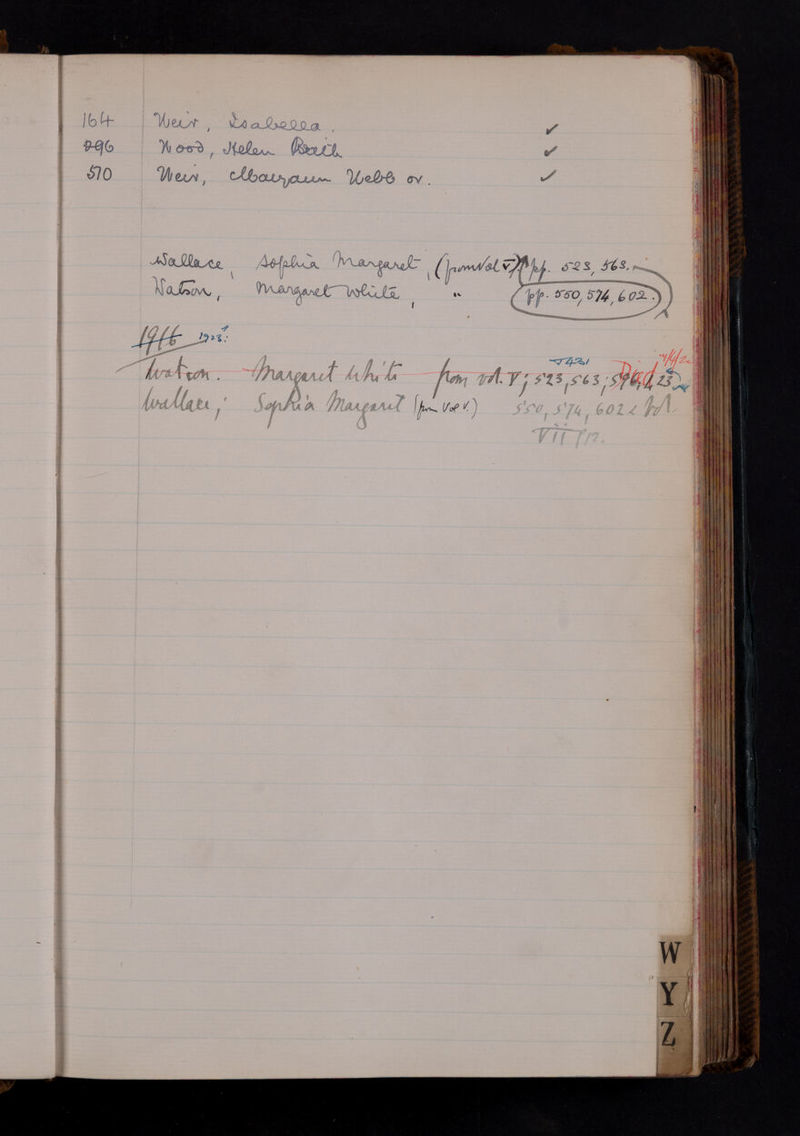 164 Weir, Isabella. ✓
296 Wood, Helen ✓
570 Weir, Webb or. ✓
Wallace, Sophia Margaret, (from Vol V) pp. 523, 563.
Watson, Margaret White, " (pp. 550, 574, 602.)
1916 1923:
Watson. Margaret White from vol. V; 523, 563; Died
Wallace, Sophia Margaret (from Vol V.) 550, 574, 602 Vol.
VII
W
Y
Z